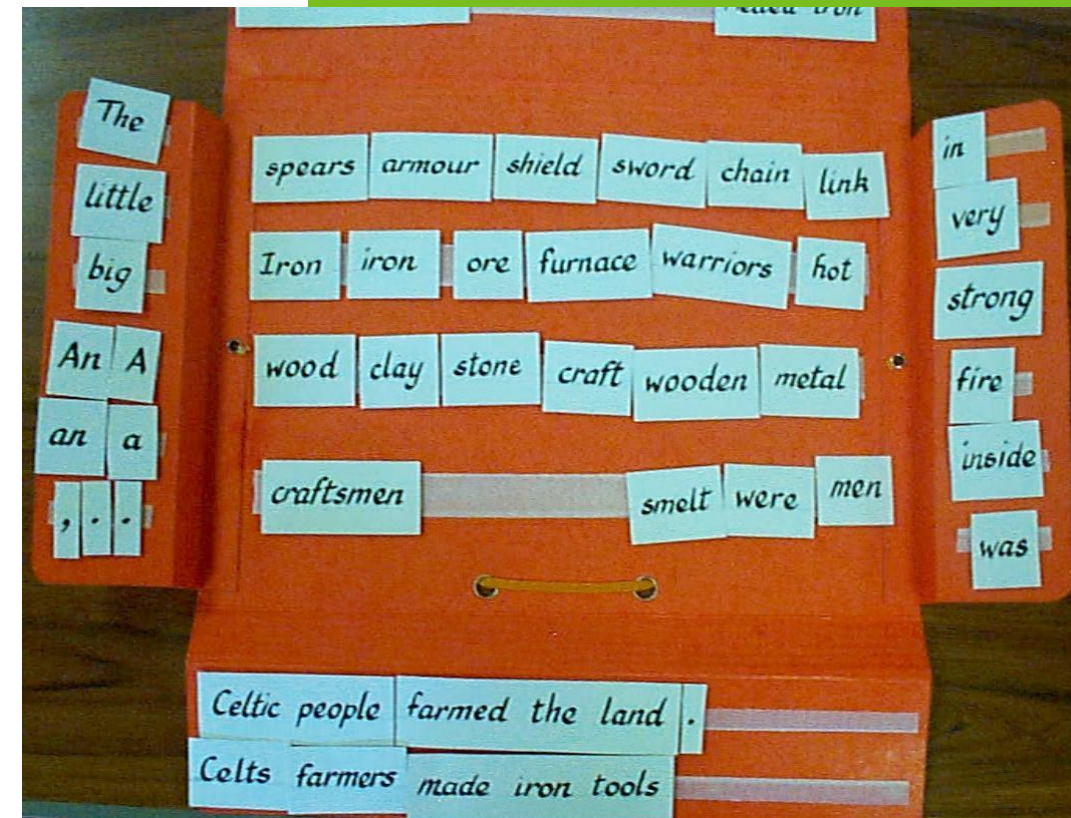 iron
The
little
big
An A
an a
, . .
spears armour shield sword chain link
Iron iron ore furnace warriors hot
wood clay stone craft wooden metal
craftsmen smelt were men
in
very
strong
fire
inside
was
Celtic people farmed the land .
Celts farmers made iron tools